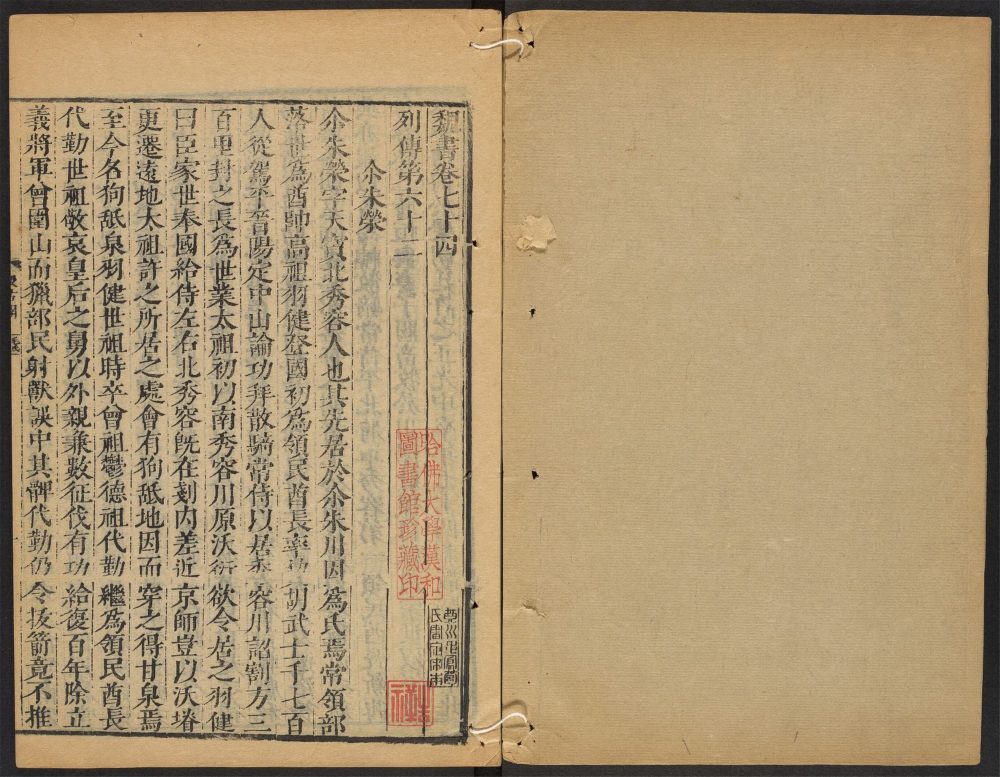 魏書卷七十四
列傳第六十二
尒朱榮
尒朱榮字天寶北秀容人也其先居於尒朱川因爲氏焉常領部
落世爲酋帥高祖羽健登國初爲領民酋長率 胡武士千七百
人從駕平晉陽定中山論功拜散騎常侍以居秀容川詔割方三
百里封之長爲世業太祖初以南秀容川原沃衍欲令居之羽健
曰臣家世奉國給侍左右北秀容旣在剗內差近京師豈以沃塉
更遷遠地太祖許之所居之處曾有狗舐地因而穿之得甘泉焉
至今名狗舐泉羽健世祖時卒曾祖鬱德祖代勤繼爲領民酋長
代勤世祖敬哀皇后之舅以外親兼數征伐有功給復百年除立
義將軍曾圍山而獵部民射獸誤中其髀代勤仍令拔箭竟不推
哈佛大學漢和
圖書館珍藏印